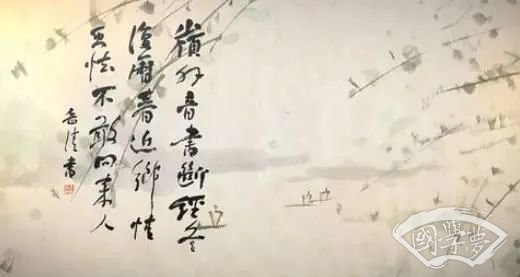 嶺外音書斷經冬
復歷春近鄉情
更怯不敢問來人
書
國學夢